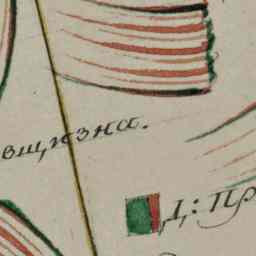 вщизна.
Д: Пр